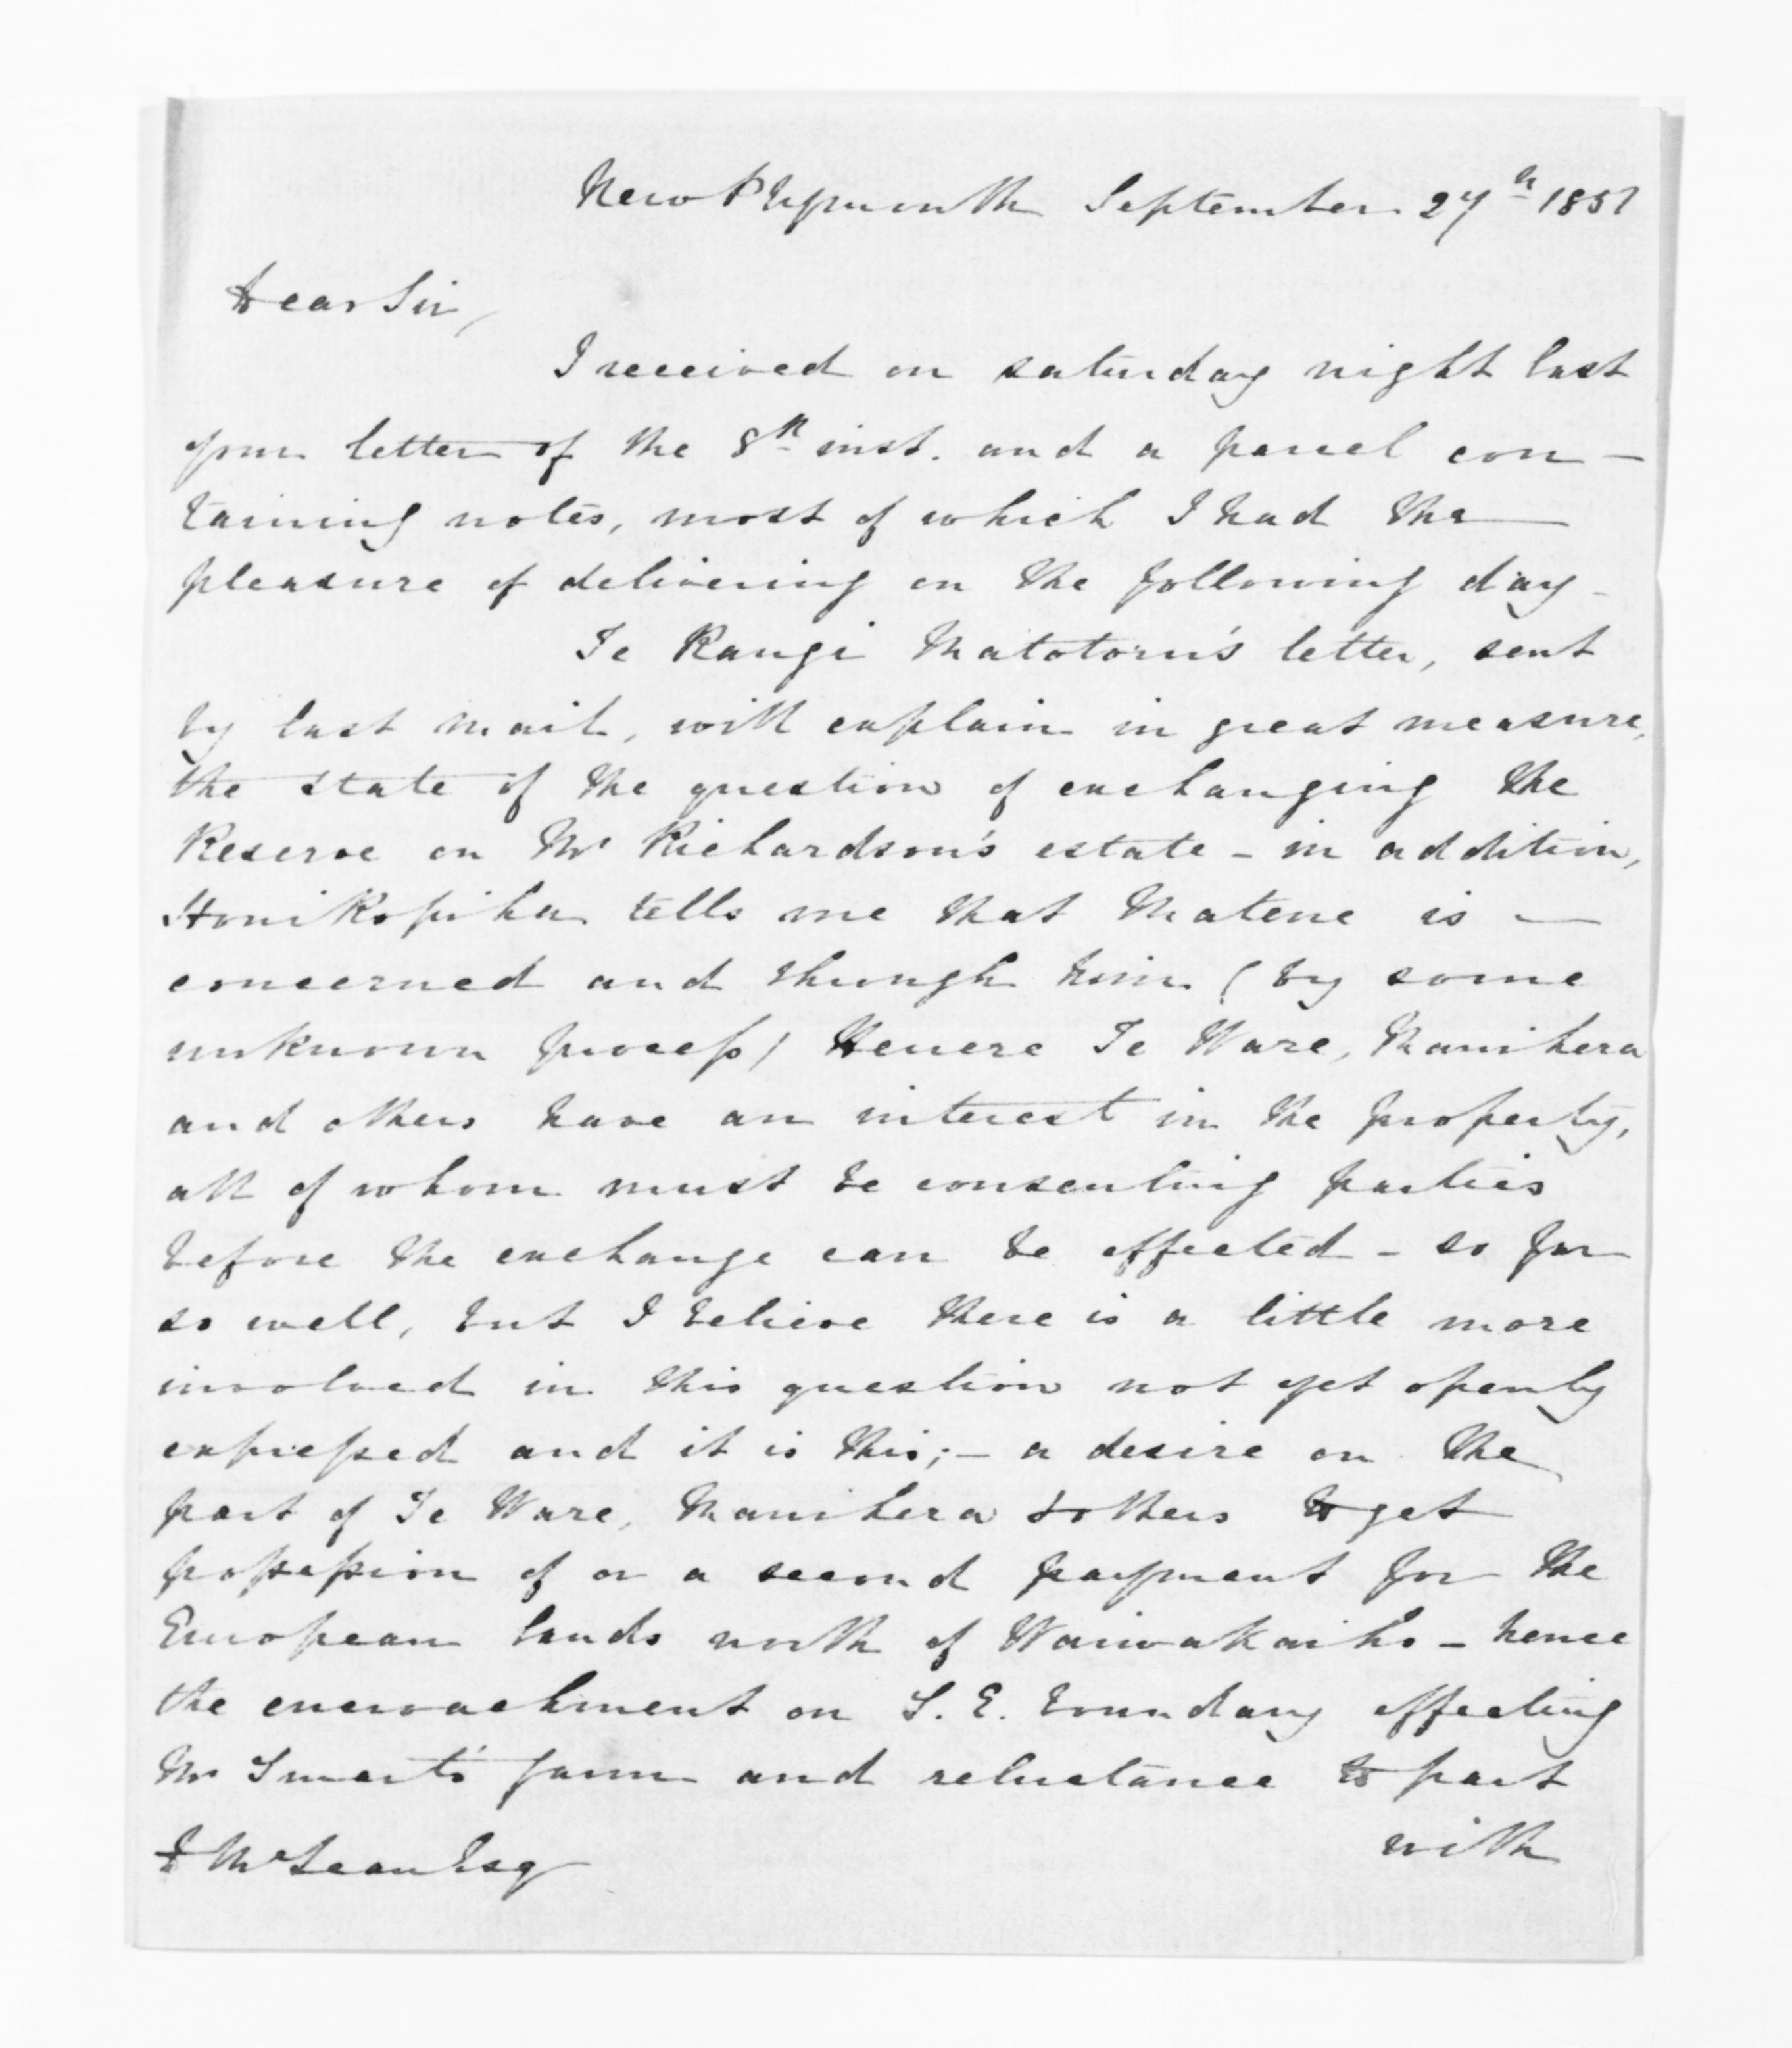 New Plymouth September 27th 1851
Dear Sir,
I received on saturday night last
your letter of the 8th inst. and a parcel con-
taining notes, most of which I had the
pleasure of delivering on the following day -
Te Rangi Matotoru's letter, sent
by last mail, will explain in great measure,
the state of the question of exchanging the
Reserve on Mr Richardson's estate - in addition,
Honi Ropiha tells me that Matene is -
concerned and through him (by some
unknown process) Henere Te Ware, Manihera
and others have an interest in the property,
all of whom must be consenting parties
before the exchange can be effected - so far
so well, but I believe there is a little more
involved in this question not yet openly
expressed and it is this; - a desire on the
part of Te Ware, Manihera & others to get
possession of or a second payment for the
European lands north of Waiwakaiho - hence
the encroachment on S. E. boundary affecting
Mr Smart's farm and reluctance to part
with
D McLean Esq